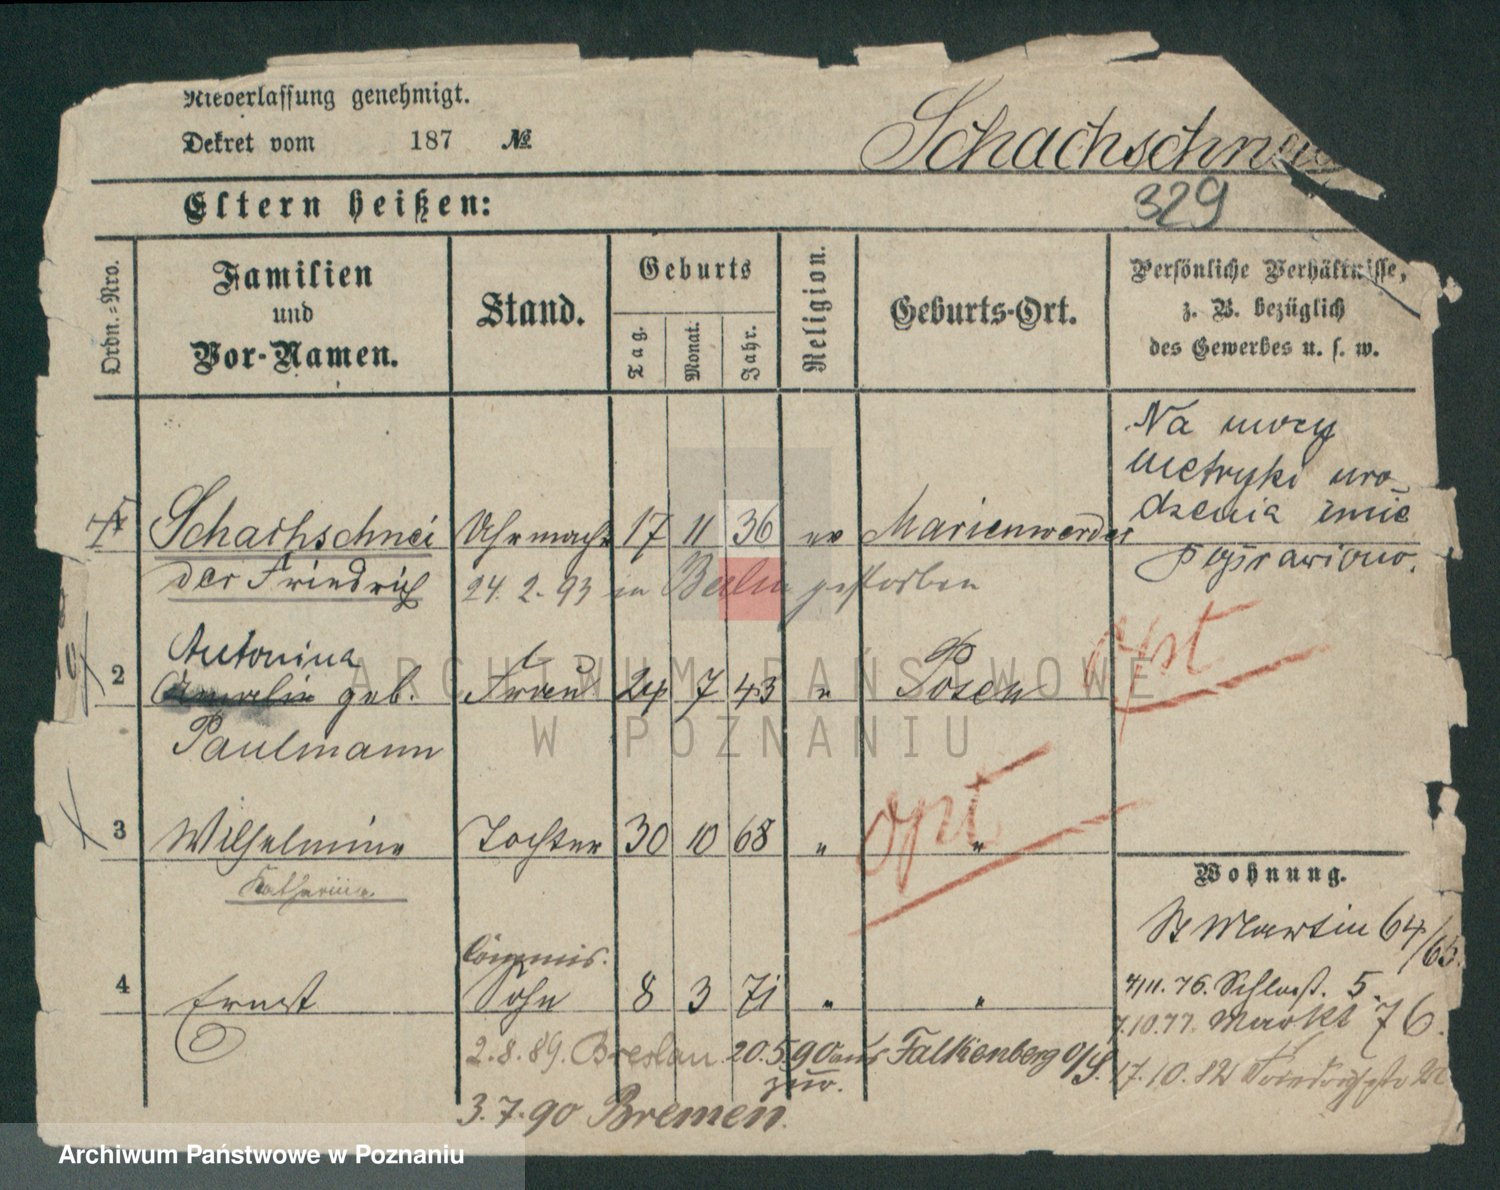 Niederlassung genehmigt.
Dekret vom 187 №
Schachschnei
329
Eltern heißen:
Ordn.-Nro.
Familien
und
Vor-Namen.
Stand.
Geburts
Tag.
Monat.
Jahr.
Religion.
Geburts-Ort.
Persönliche Verhältnisse,
z. B. bezüglich
des Gewerbes u. s. w.
Na mocy
metryki uro-
dzenia imię
poprawiono.
1 Schachschnei Uhrmacher 17 11 36 ev Marienwerder
der Friedrich
24. 2. 93 in Berlin gestorben
Antonina
2 geb. Frau 24 7 43 " Posen
opt
Paulmann
3 Wilhelmine Tochter 30 10 68 " "
opt
Katharina
Wohnung.
St Martin 64/65.
4/11. 76. Schloßst. 5.
7.10.77. Markt 76.
17.10.82 Friedrichstr
Commis.
4 Ernst Sohn 8 3 71 " "
2.8.89. Breslau 20.5.90 aus Falkenberg O/S.
zur.
3.7.90 Bremen.
ARCHIWUM PAŃSTWOWE
W POZNANIU
Archiwum Państwowe w Poznaniu